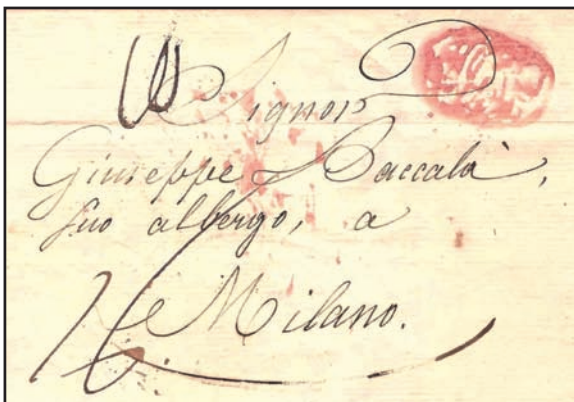 Signor
Giuseppe Baccalà,
suo albergo, a
Milano.